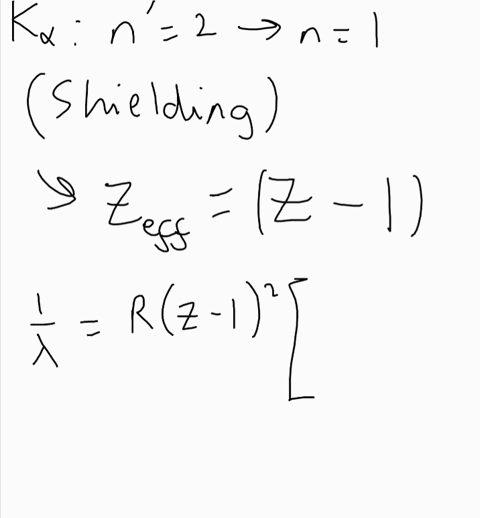 Kα: n' = 2 → n = 1
(Shielding)
↘ Zeff = (Z - 1)
1/λ = R(Z-1)² [